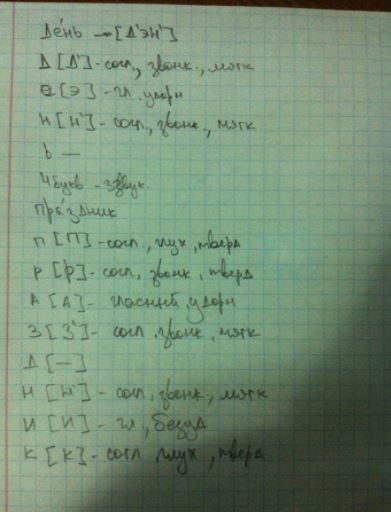 День → [Д'ЭН']
Д [Д'] - согл., звонк., мягк
е [Э] - гл. ударн
Н [Н'] - согл., звонк., мягк
Ь —
4букв - 3звук.
Праздник
П [П] - согл., глух, тверд
Р [Р] - согл, звонк, тверд
А [А] - гласный, ударн
З [З'] - согл. звонк, мягк
Д [—]
Н [Н'] - согл, звонк., мягк
И [И] - гл., безуд
К [К] - согл глух, тверд